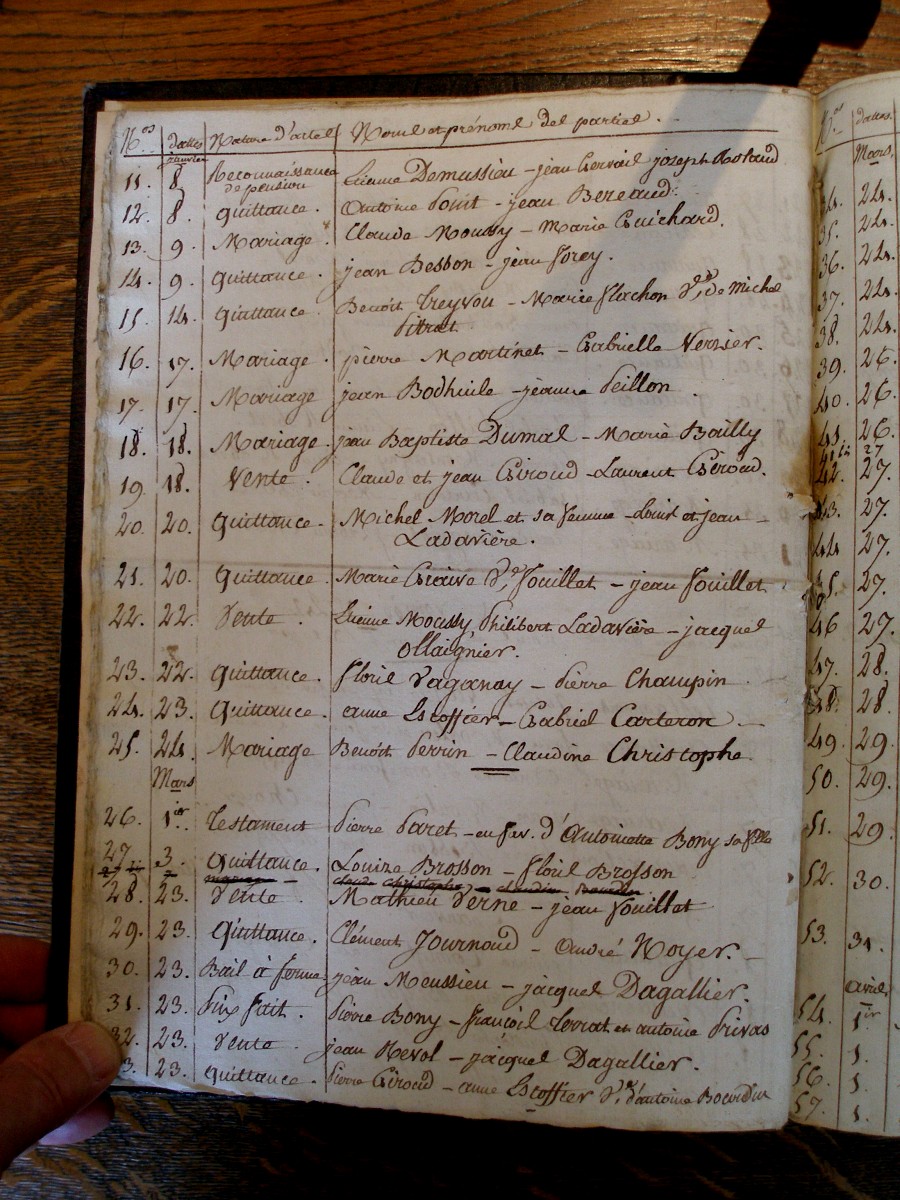 N.os dattes Nature d'actes Noms et prénoms des parties.
11. 8. Reconnaissance Etienne Demussieu - jean Gervais joseph
de pension
12. 8. Quittance. Antoine Point - jean Bereaud.
13. 9. Mariage. Claude Moussy - Marie Guichard.
14. 9. Quittance. jean Besson - jean forey.
15. 14. Quittance. Benoit Treyvou - Marie flachon V.e de Michel
Pitrat.
16. 17. Mariage. pierre Martinet - Gabrielle Vernier.
17. 17. Mariage jean Bodhuile - jeanne Peillon
18. 18. Mariage. jean Baptiste Dumas - Marie Bailly
19. 18. Vente. Claude et jean Giroud - Laurent Giroud.
20. 20. Quittance. Michel Morel et sa femme - Louis et jean
Ladavière.
21. 20. Quittance. Marie V.e fouillet - jean fouillet
22. 22. Vente. Etienne Moussy, Philibert Ladavière - jacques
Ollaignier.
23. 22. Quittance. floris Vaganay - Pierre Champin
24. 23. Quittance. anne Escoffier - Gabriel Carteron.
25. 24. Mariage Benoit Perrin - Claudine Christophe
Mars
26. 1.er Testament Pierre Paret - en fav. d'Antoinette Bony sa fille
27. 3. Quittance. Louize Brosson - floris Brosson
28. 23. Vente. Mathieu Verne - jean fouillet
29. 23. Quittance. Clément Journoud - André Noyer.
30. 23. Bail à ferme jean Meussieu - jacques Dagallier.
31. 23. Prix fait. Pierre Bony - françois Terrat et antoine Privas
32. 23. Vente. jean Revol - jacques Dagallier.
3. 23. Quittance. Pierre Giroud - anne Escoffier V.e d'antoine Bourdin
N.os dattes.
Mars,
34. 24.
35. 24.
36. 24.
37. 24.
38. 24.
39. 26.
40. 26.
41. 26.
27
42. 27.
43. 27.
44 27.
45. 27.
46 27.
47. 28.
48. 28
49. 29.
50. 29.
51. 29.
52. 30.
53. 31.
avril
54. 1.er
55. 1.
56. 1.
57. 1.